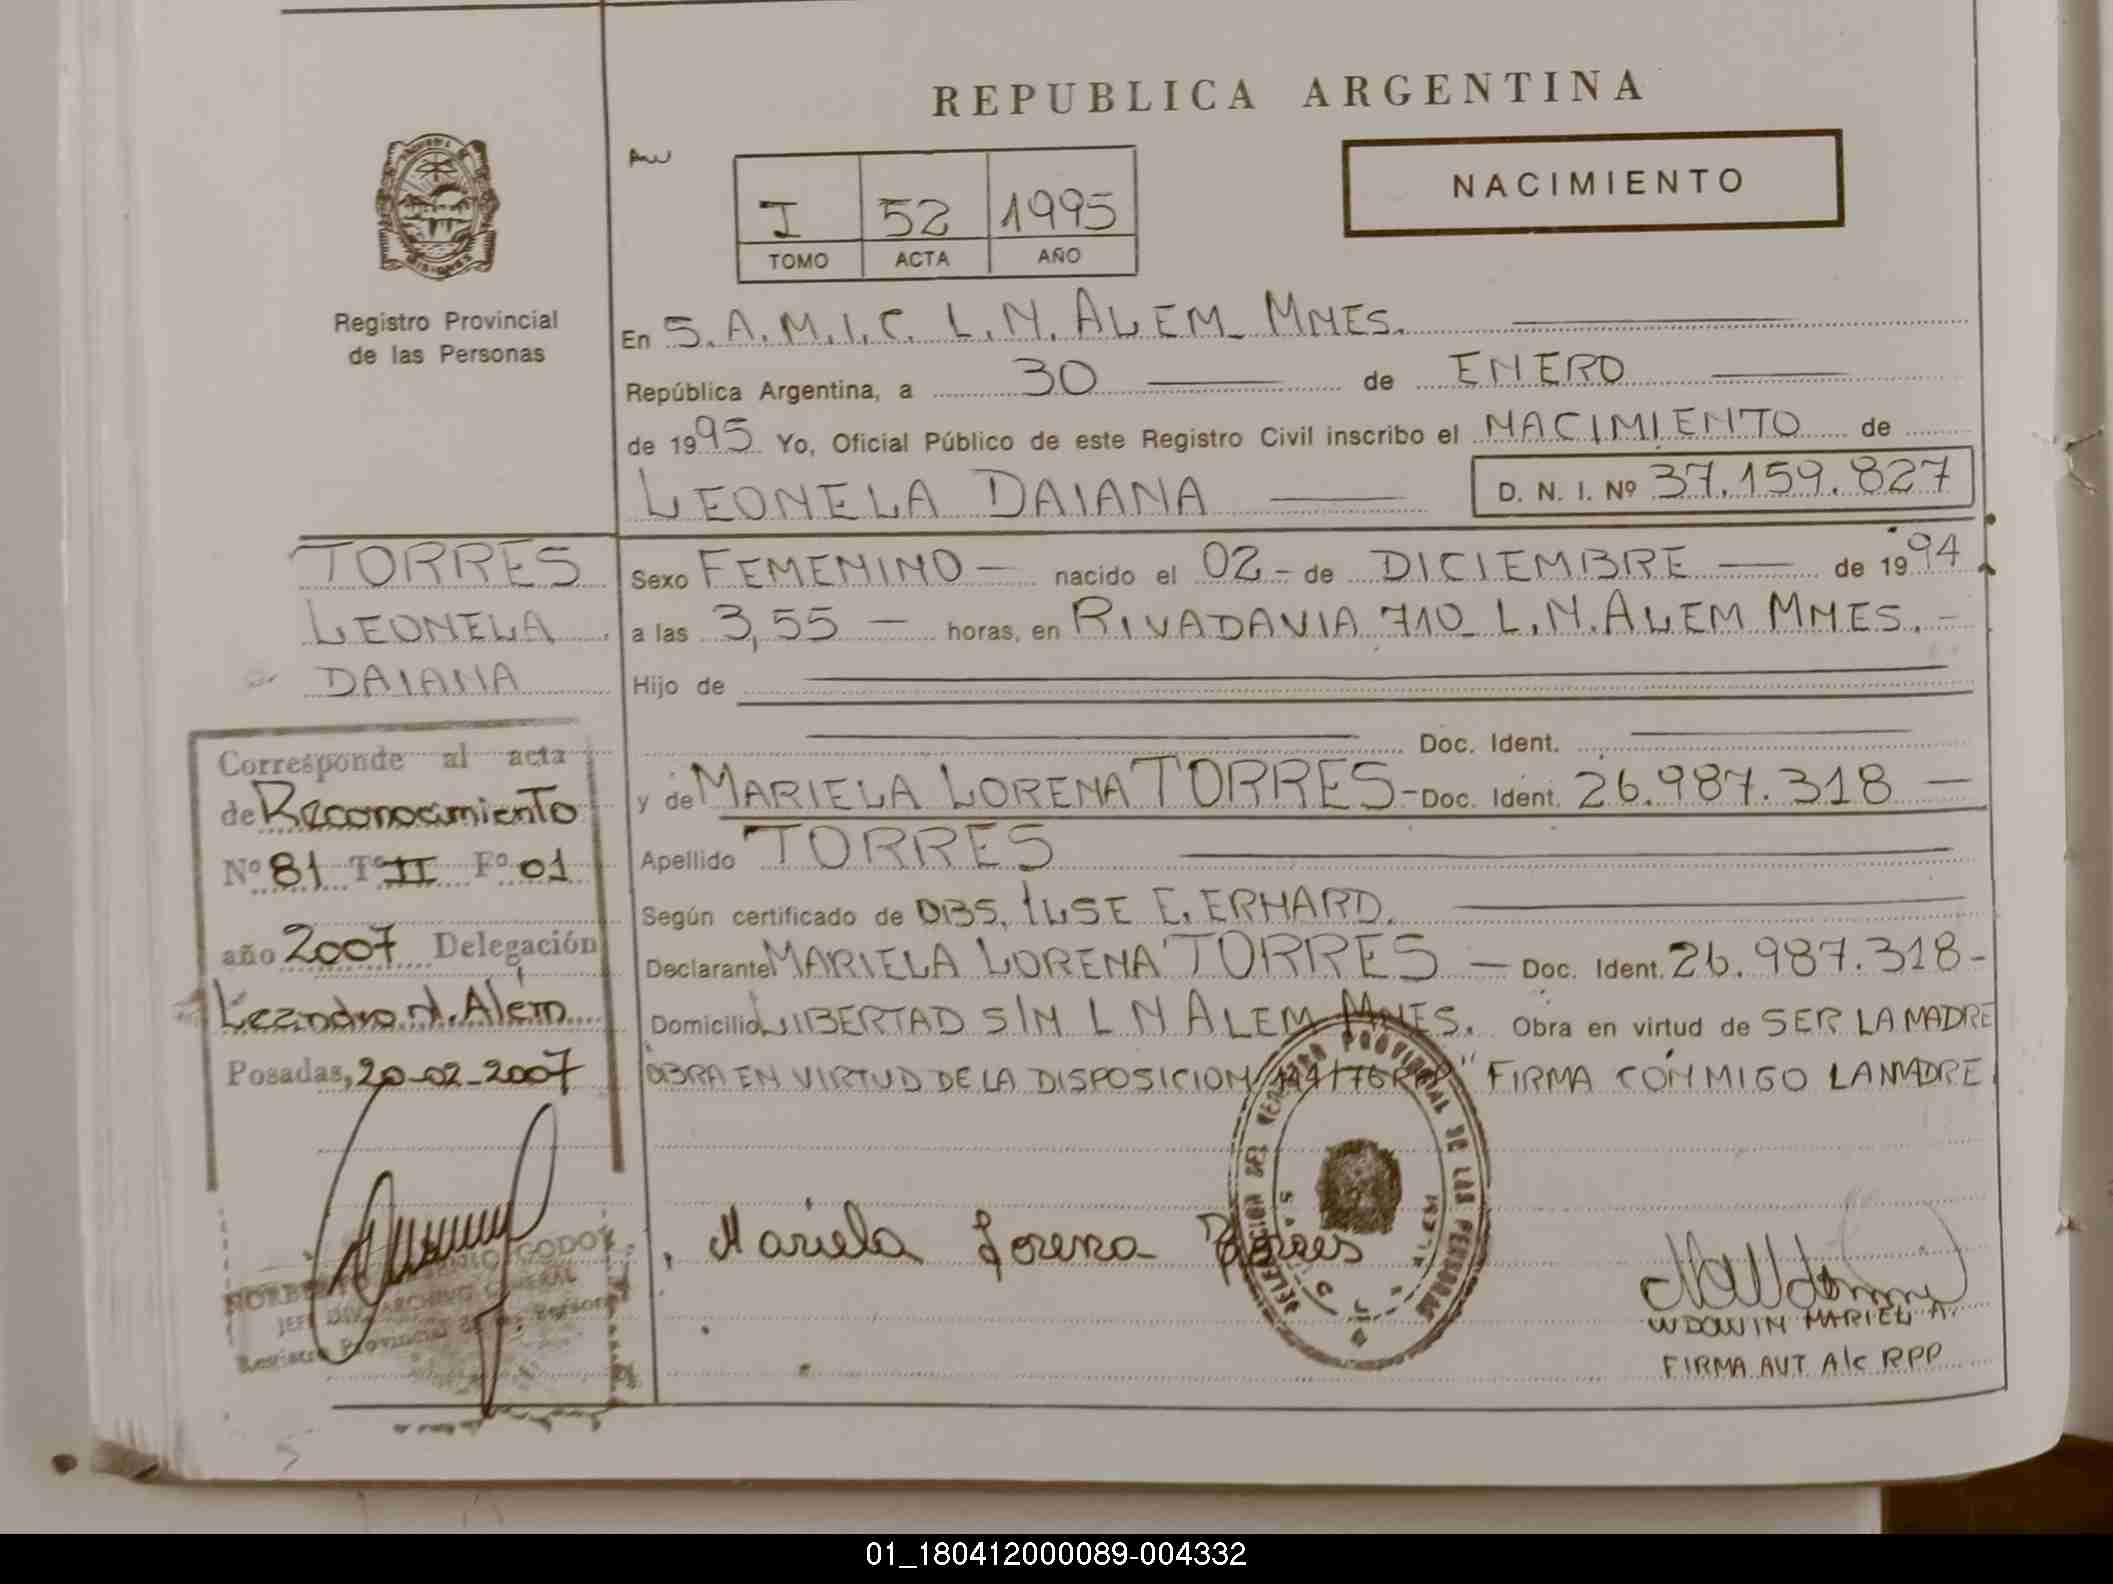 REPUBLICA ARGENTINA
NACIMIENTO
I 52 1995
TOMO ACTA AÑO
Registro Provincial
de las Personas
En S.A.M.I.C. L.N. ALEM MNES.
República Argentina, a 30 de ENERO
de 1995 Yo, Oficial Público de este Registro Civil inscribo el NACIMIENTO de
LEONELA DAIANA D. N. I. Nº 37.159.827
TORRES
LEONELA
DAIANA
Sexo FEMENINO - nacido el 02 - de DICIEMBRE de 1994
a las 3,55 - horas, en RIVADAVIA 710 L.N. ALEM MNES. -
Hijo de
Doc. Ident.
y de MARIELA LORENA TORRES - Doc. Ident. 26.987.318
Apellido TORRES
Según certificado de OBS. ILSE E. ERHARD.
Declarante MARIELA LORENA TORRES - Doc. Ident. 26.987.318 -
Domicilio LIBERTAD S/N L N ALEM MNES. Obra en virtud de SER LA MADRE
OBRA EN VIRTUD DE LA DISPOSICION " FIRMA CONMIGO LA MADRE.
Corresponde al acta
de Reconocimiento
Nº 81 Tº II Fº 01
año 2007 Delegación
Leandro N. Alem
Posadas, 20-02-2007
GODOY
JEFE DIV. ARCHIVO GENERAL
Registro Provincial de las Personas
Mariela Lorena Torres
DELEGACION DEL REGISTRO PROVINCIAL DE LAS PERSONAS
WDOWIN MARIEL A.
FIRMA AUT A/C RPP
01_180412000089-004332